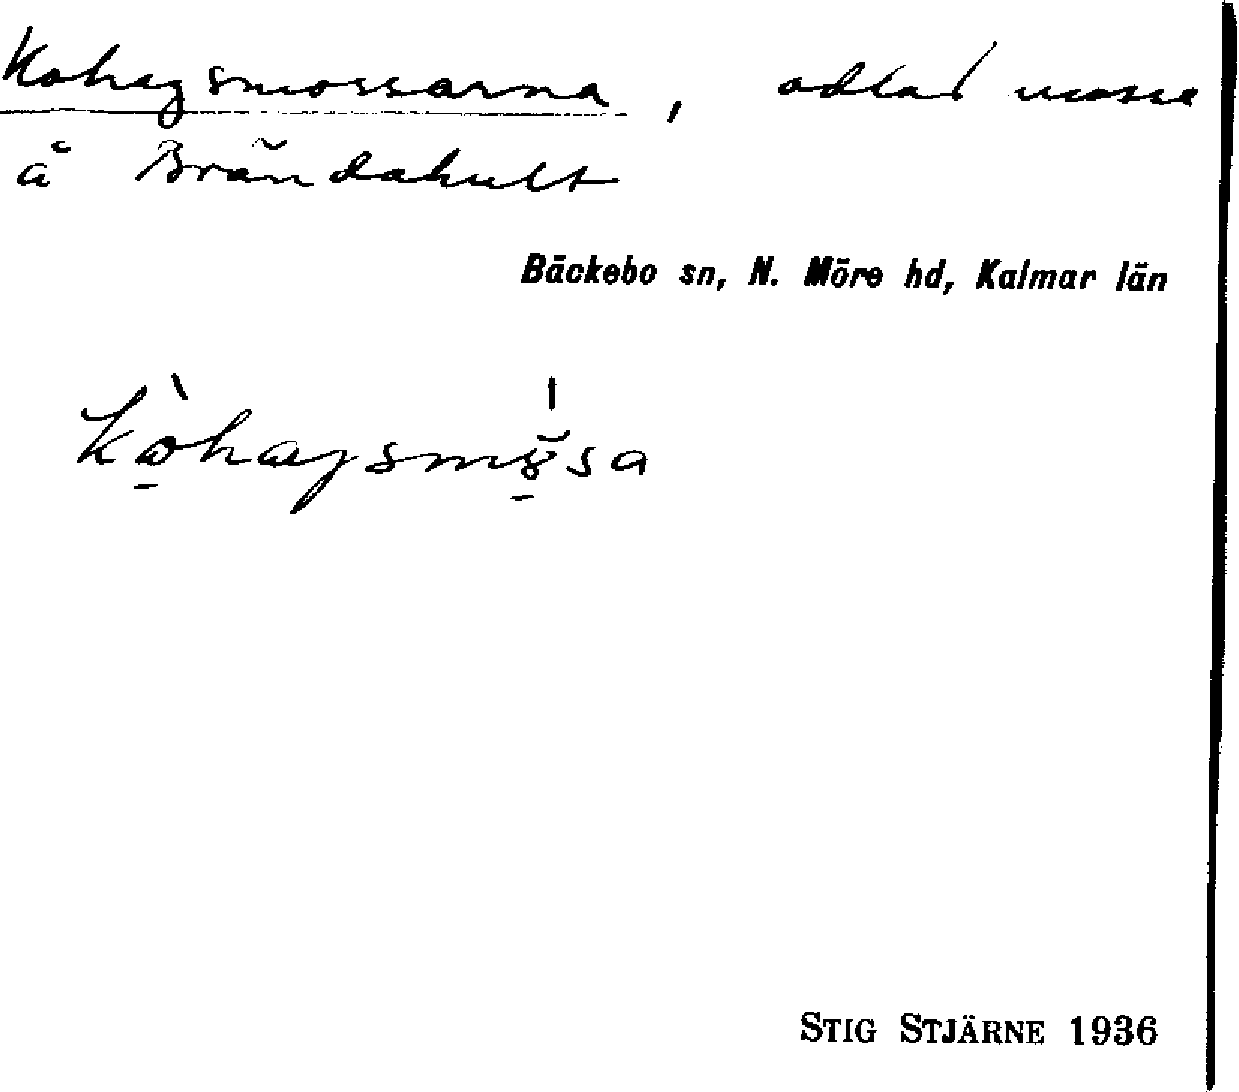 Kohagsmossarna, odlad mosse
å Brändahult
Bäckebo sn, N. Möre hd, Kalmar län
STIG STJÄRNE 1936